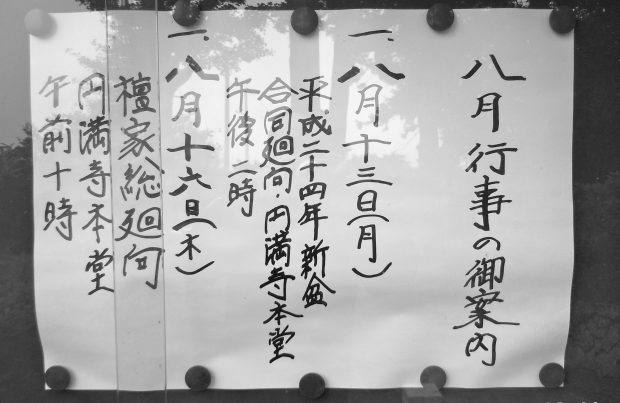 八月行事の御案内
一、八月十三日(月)
平成二十四年新盆
合同廻向・円満寺本堂
午後二時
一、八月十六日(木)
檀家総廻向
円満寺本堂
午前十時